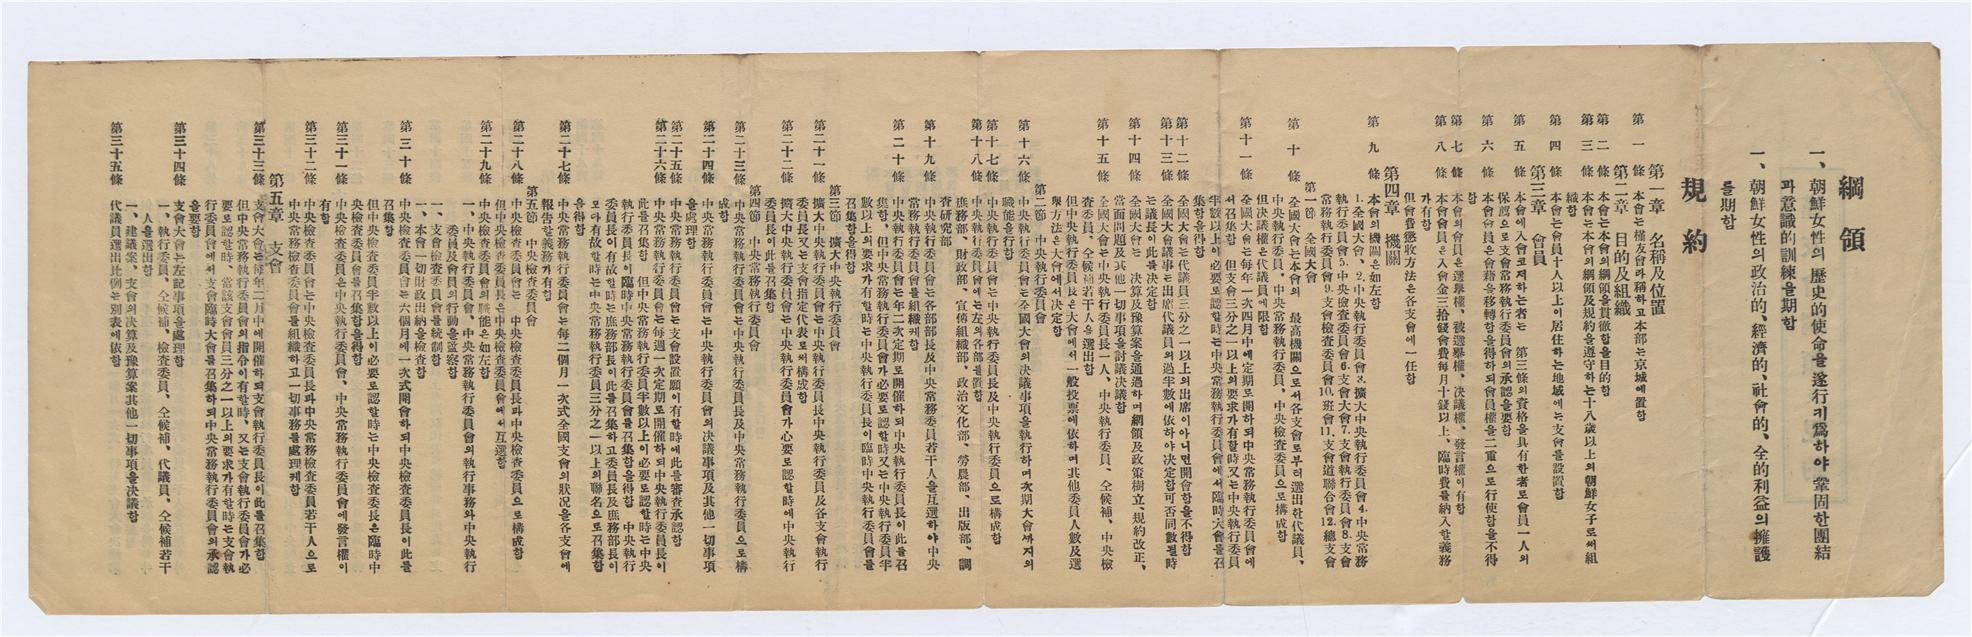 綱領
一、朝鮮女性의 歷史的使命을遂行키爲하야鞏固한團結
과意識的訓練을期함
一、朝鮮女性의政治的、經濟的、社會的、全的利益의擁護
를期함
規約
第一章 名稱及位置
第一條 本會는槿友會라稱하고本部는京城에置함
第二章 目的及組織
第二條 本會는本會의綱領을貫徹함을目的함
第三條 本會는本會의綱領及規約을遵守하는十八歲以上의朝鮮女子로써組
織함
第四條 本會는會員十人以上이居住하는地域에는支會를設置함
第三章 會員
第五條 本會에入會코저하는者는 第三條의資格을具有한者로會員一人의
保薦으로支會常務執行委員會의承認을要함
第六條 本會會員은會籍을移轉함을得하되會員權을二重으로行使함을不得
함
第七條 本會의會員은選擧權、被選擧權、決議權、發言權이有함
第八條 本會會員은入會金三拾錢會費每月十錢以上、臨時費를納入할義務
가有함
但會費懲收方法은各支會에一任함
第四章 機關
第九條 本會의機關은如左함
1.全國大會、2.中央執行委員會3.擴大中央執行委員會4.中央常務
執行委員會5.中央檢查委員會6.支會大會7.支會執行委員會8.支會
常務執行委員會9.支會檢查委員會10.班會11.支會道聯合會12.總支會
第一節 全國大會
第十條 全國大會는本會의 最高機關으로서各支會로부터選出한代議員、
中央執行委員、中央常務執行委員、中央檢查委員으로構成함
但決議權은代議員에限함
第十一條 全國大會는每年一次四月中에定期로開하되中央常務執行委員會에
서召集함 但支會三分之一以上의要求가有할時又는中央執行委員
半數以上이必要로認할時는中央常務執行委員會에서臨時大會를召
集함을得함
第十二條 全國大會는代議員三分之一以上의出席이아니면開會함을不得함
第十三條 全國大會議事는出席代議員의過半數에依하야決定함可否同數될時
는議長이此를決定함
第十四條 全國大會는 決算及豫算案을通過하며綱領及政策樹立、規約改正、
當面問題及其他一切事項을討議決議함
第十五條 全國大會는中央執行委員長一人、中央執行委員、仝候補、中央檢
査委員、仝候補若干人을選出함
但中央執行委員長은大會에서一般投票에依하며其他委員人數及選
擧方法은大會에서決定함
第二節 中央執行委員會
第十六條 中央執行委員會는全國大會의決議事項을執行하며次期大會까지의
職能을行함
第十七條 中央執行委員會는中央執行委員長及中央執行委員으로構成함
第十八條 中央執行委員會에는左의各部를置함
庶務部、財政部、宣傳組織部、政治文化部、勞農部、出版部、調
査硏究部
第十九條 中央執行委員會는各部部長及中央常務委員若干人을互選하야中央
常務執行委員會를組織케함
第二十條 中央執行委員會는年二次定期로開催하되中央執行委員長이此를召
集함、但中央常務執行委員會가必要로認할時又는中央執行委員半
數以上의要求가有할時는中央執行委員長이臨時中央執行委員會를
召集함을得함
第三節 擴大中央執行委員會
第二十一條 擴大中央執行委員會는中央執行委員長中央執行委員及各支會執行
委員長又는支會指定代表로써構成함
第二十二條 擴大中央執行委員會는 中央常務執行委員會가必要로認할時에中央執行
委員長이此를召集함
第四節 中央常務執行委員會
第二十三條 中央常務執行委員會는中央執行委員長及中央常務執行委員으로構
成함
第二十四條 中央常務執行委員會는中央執行委員會의決議事項及其他一切事項
을處理함
第二十五條 中央常務執行委員會는支會設置願이有할時에此를審査承認함
第二十六條 中央常務執行委員會는每週一次定期로開催하되中央執行委員長이
此를召集함 但中央常務執行委員半數以上이必要로認할時는中央
執行委員長이臨時中央常務執行委員會를召集함을得함 中央執行
委員長이有故할時에는庶務部長이此를召集하고委員長及庶務部長이
모다有故할時는中央常務執行委員三分之一以上의聯名으로召集함
을得함
第二十七條 中央常務執行委員會는每二個月一次式全國支會의狀況을各支會에
報告할義務가有함
第五節 中央檢查委員會
第二十八條 中央檢查委員會는 中央檢查委員長과中央檢查委員으로構成함
但中央檢查委員長은中央檢查委員會에서互選함
第二十九條 中央檢查委員會의職能은如左함
一、中央執行委員會、中央常務執行委員會의執行事務와中央執行
委員及會員의行動을監察함
一、支會檢查委員會를統制함
一、本會一切財政出納을檢查함
第三十條 中央檢查委員會는六個月에一次式開會하되中央檢查委員長이此를
召集함
但中央檢查委員半數以上이必要로認할時는中央檢查委員長은臨時中
央檢查委員會를召集함을得함
第三十一條 中央常務檢查委員은中央執行委員會、中央常務執行委員會에發言權이
有함
第三十二條 中央檢查委員會는中央檢查委員長과中央常務檢查委員若干人으로
中央常務檢查委員會를組織하고一切事務를處理케함
第五章 支會
第三十三條 支會大會는每年二月中에開催하되支會執行委員長이此를召集함
但中央常務執行委員會의指令이有할時、又는支會執行委員會가必
要로認할時、當該支會會員三分之一以上의要求가有할時는支會執
行委員會에서支會臨時大會를召集하되中央常務執行委員會의承認
을要함
第三十四條 支會大會는左記事項을處理함
一、執行委員、仝候補、檢查委員、仝候補、代議員、仝候補若干
人을選出함
一、建議案、支會의決算及豫算案其他一切事項을決議함
第三十五條 代議員選出比例는別表에依함